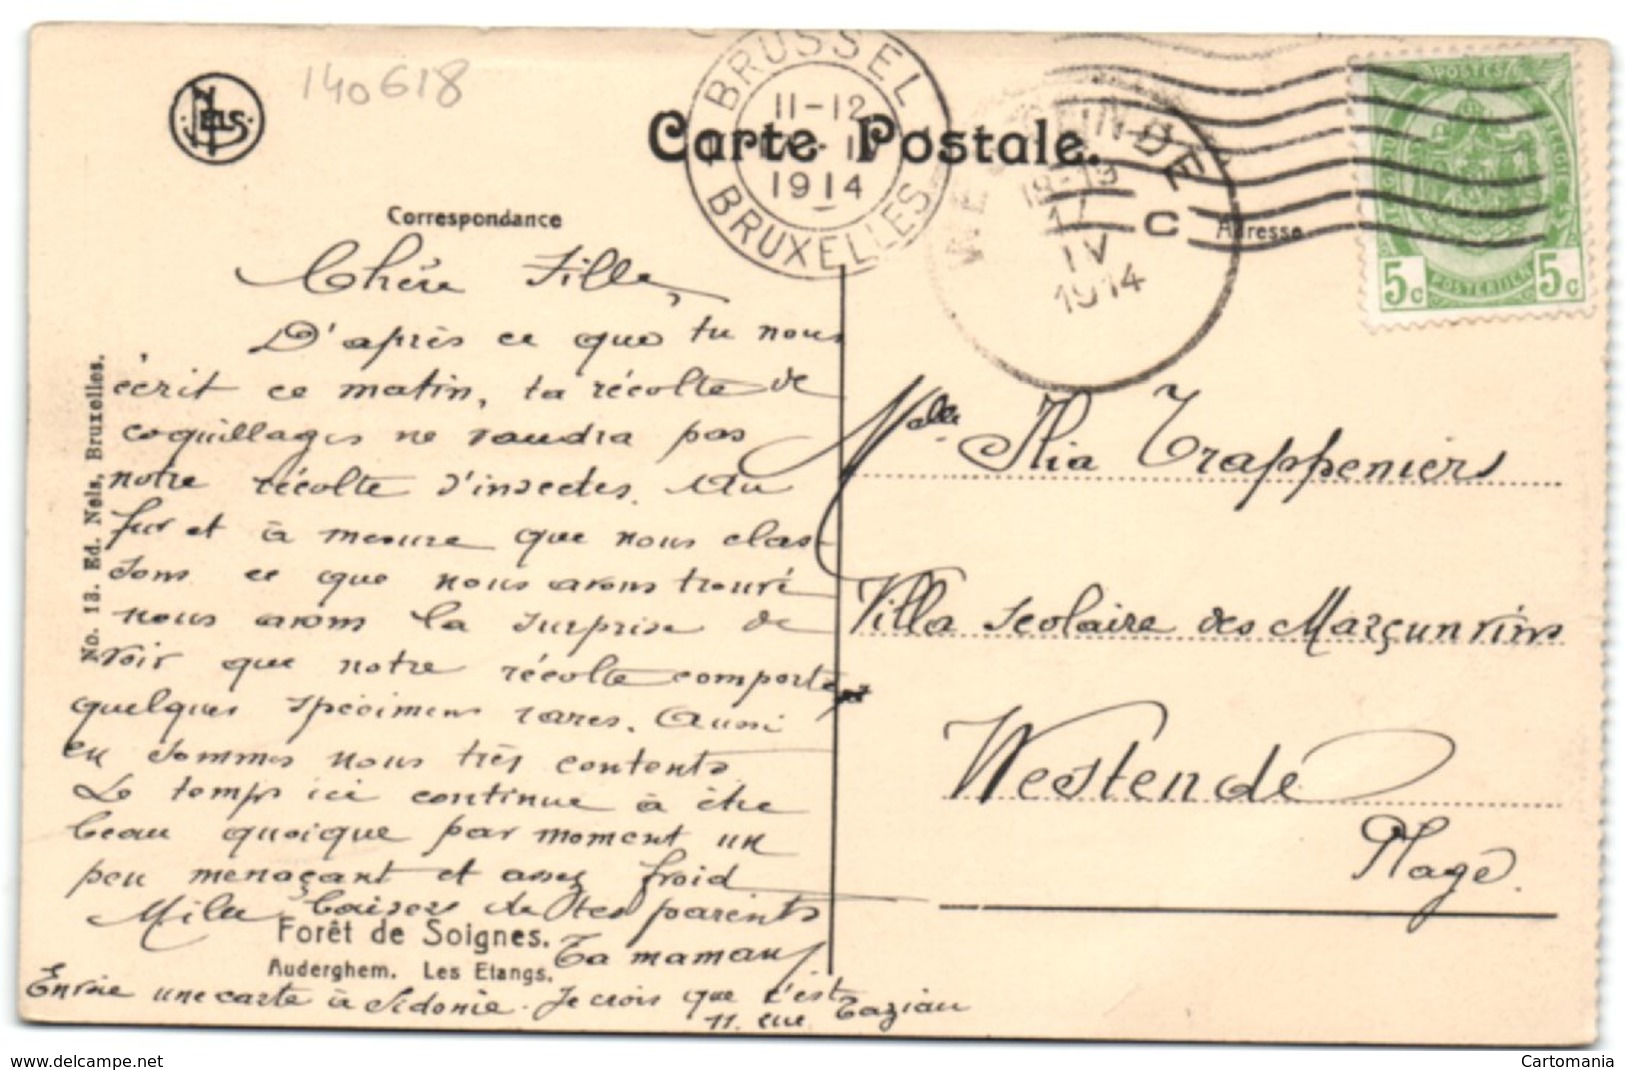 140618
NELS
BRUSSEL
11-12
1914
BRUXELLES
WESTENDE
18-19
17
IV
1914
C
POSTES
POSTERIJEN
5c 5c
Carte Postale.
Correspondance
Adresse
No. 13. Ed. Nels, Bruxelles.
Chère Fille,
D'après ce que tu nous
écrit ce matin, ta récolte de
coquillages ne vaudra pas
notre récolte d'insectes. Au
fur et à mesure que nous clas-
sons ce que nous avons trouvé
nous avons la surprise de
voir que notre récolte comporte
quelques spécimens rares. Aussi
en sommes nous très contents
Le temps ici continue à être
beau quoique par moment un
peu menaçant et assez froid
Mille baisers de tes parents
Ta maman
Forêt de Soignes.
Auderghem. Les Etangs.
Envoie une carte à Sidonie. Je crois que c'est
11. rue Tazieau
Melle Trappeniers
Villa Scolaire des
Westende
Plage.
delcampe.net
Cartomania